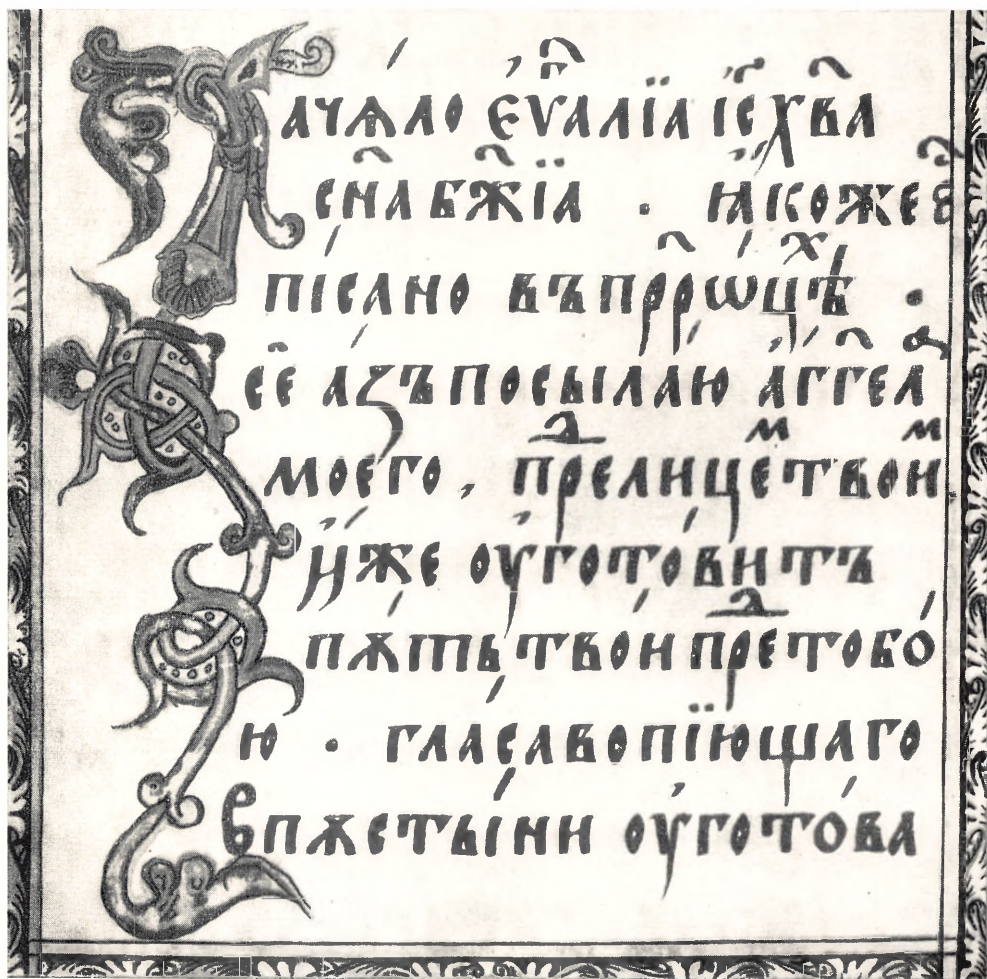 Зачѧло єѵⷢ҇алїа і҆с҃ х҃ва
сн҃а бж҃їа · ꙗ҆коже є҆
пісано въ прⷪ҇рѡцⷯѣ ·
се҃ азъ посылаю а҆гг҃елⷶ
моего , прⷣе лицеⷨ твоиⷨ
и҆же оуготовитъ
пѫть твои прⷣе тобо́
ю · гласа вопїющаго
в пѫстыни оуготова